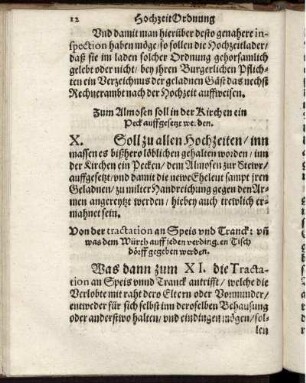 12 HochzeitOrdnung
Vnd damit man hierüber desto genahere in-
spection haben möge / so sollen die Hochzeitlader /
daß sie im laden solcher Ordnung gehorsamlich
gelebt oder nicht / bey ihren Burgerlichen Pflich-
ten ein Verzeichnus der geladnen Gäst das nechst
Rechneramht nach der Hochzeit auffweisen.
Zum Almosen soll in der Kirchen ein
Peck auffgesetzt werden.
X. Soll zu allen Hochzeiten / inn
massen es bißhero löblichen gehalten worden / inn
der Kirchen ein Pecken / dem Almosen zur Stewr /
auffgesetzt / vnd damit die newe Eheleut sampt jren
Geladnen / zu milter Handreichung gegen den Ar-
men angereytzt werden / hiebey auch trewlich er-
mahnet sein.
Von der tractation an Speis vnd Tranck: vn̄
was dem Würth auff jeden verdingten Tisch
dörff gegeben werden.
Was dann zum XI. die Tracta-
tion an Speis vnnd Tranck antrifft / welche die
Verlobte mit raht ders Eltern oder Vormunder /
entweder für sich selbst inn deroselben Behausung
oder anderstwo halten / vnd eindingen mögen / sol-
len